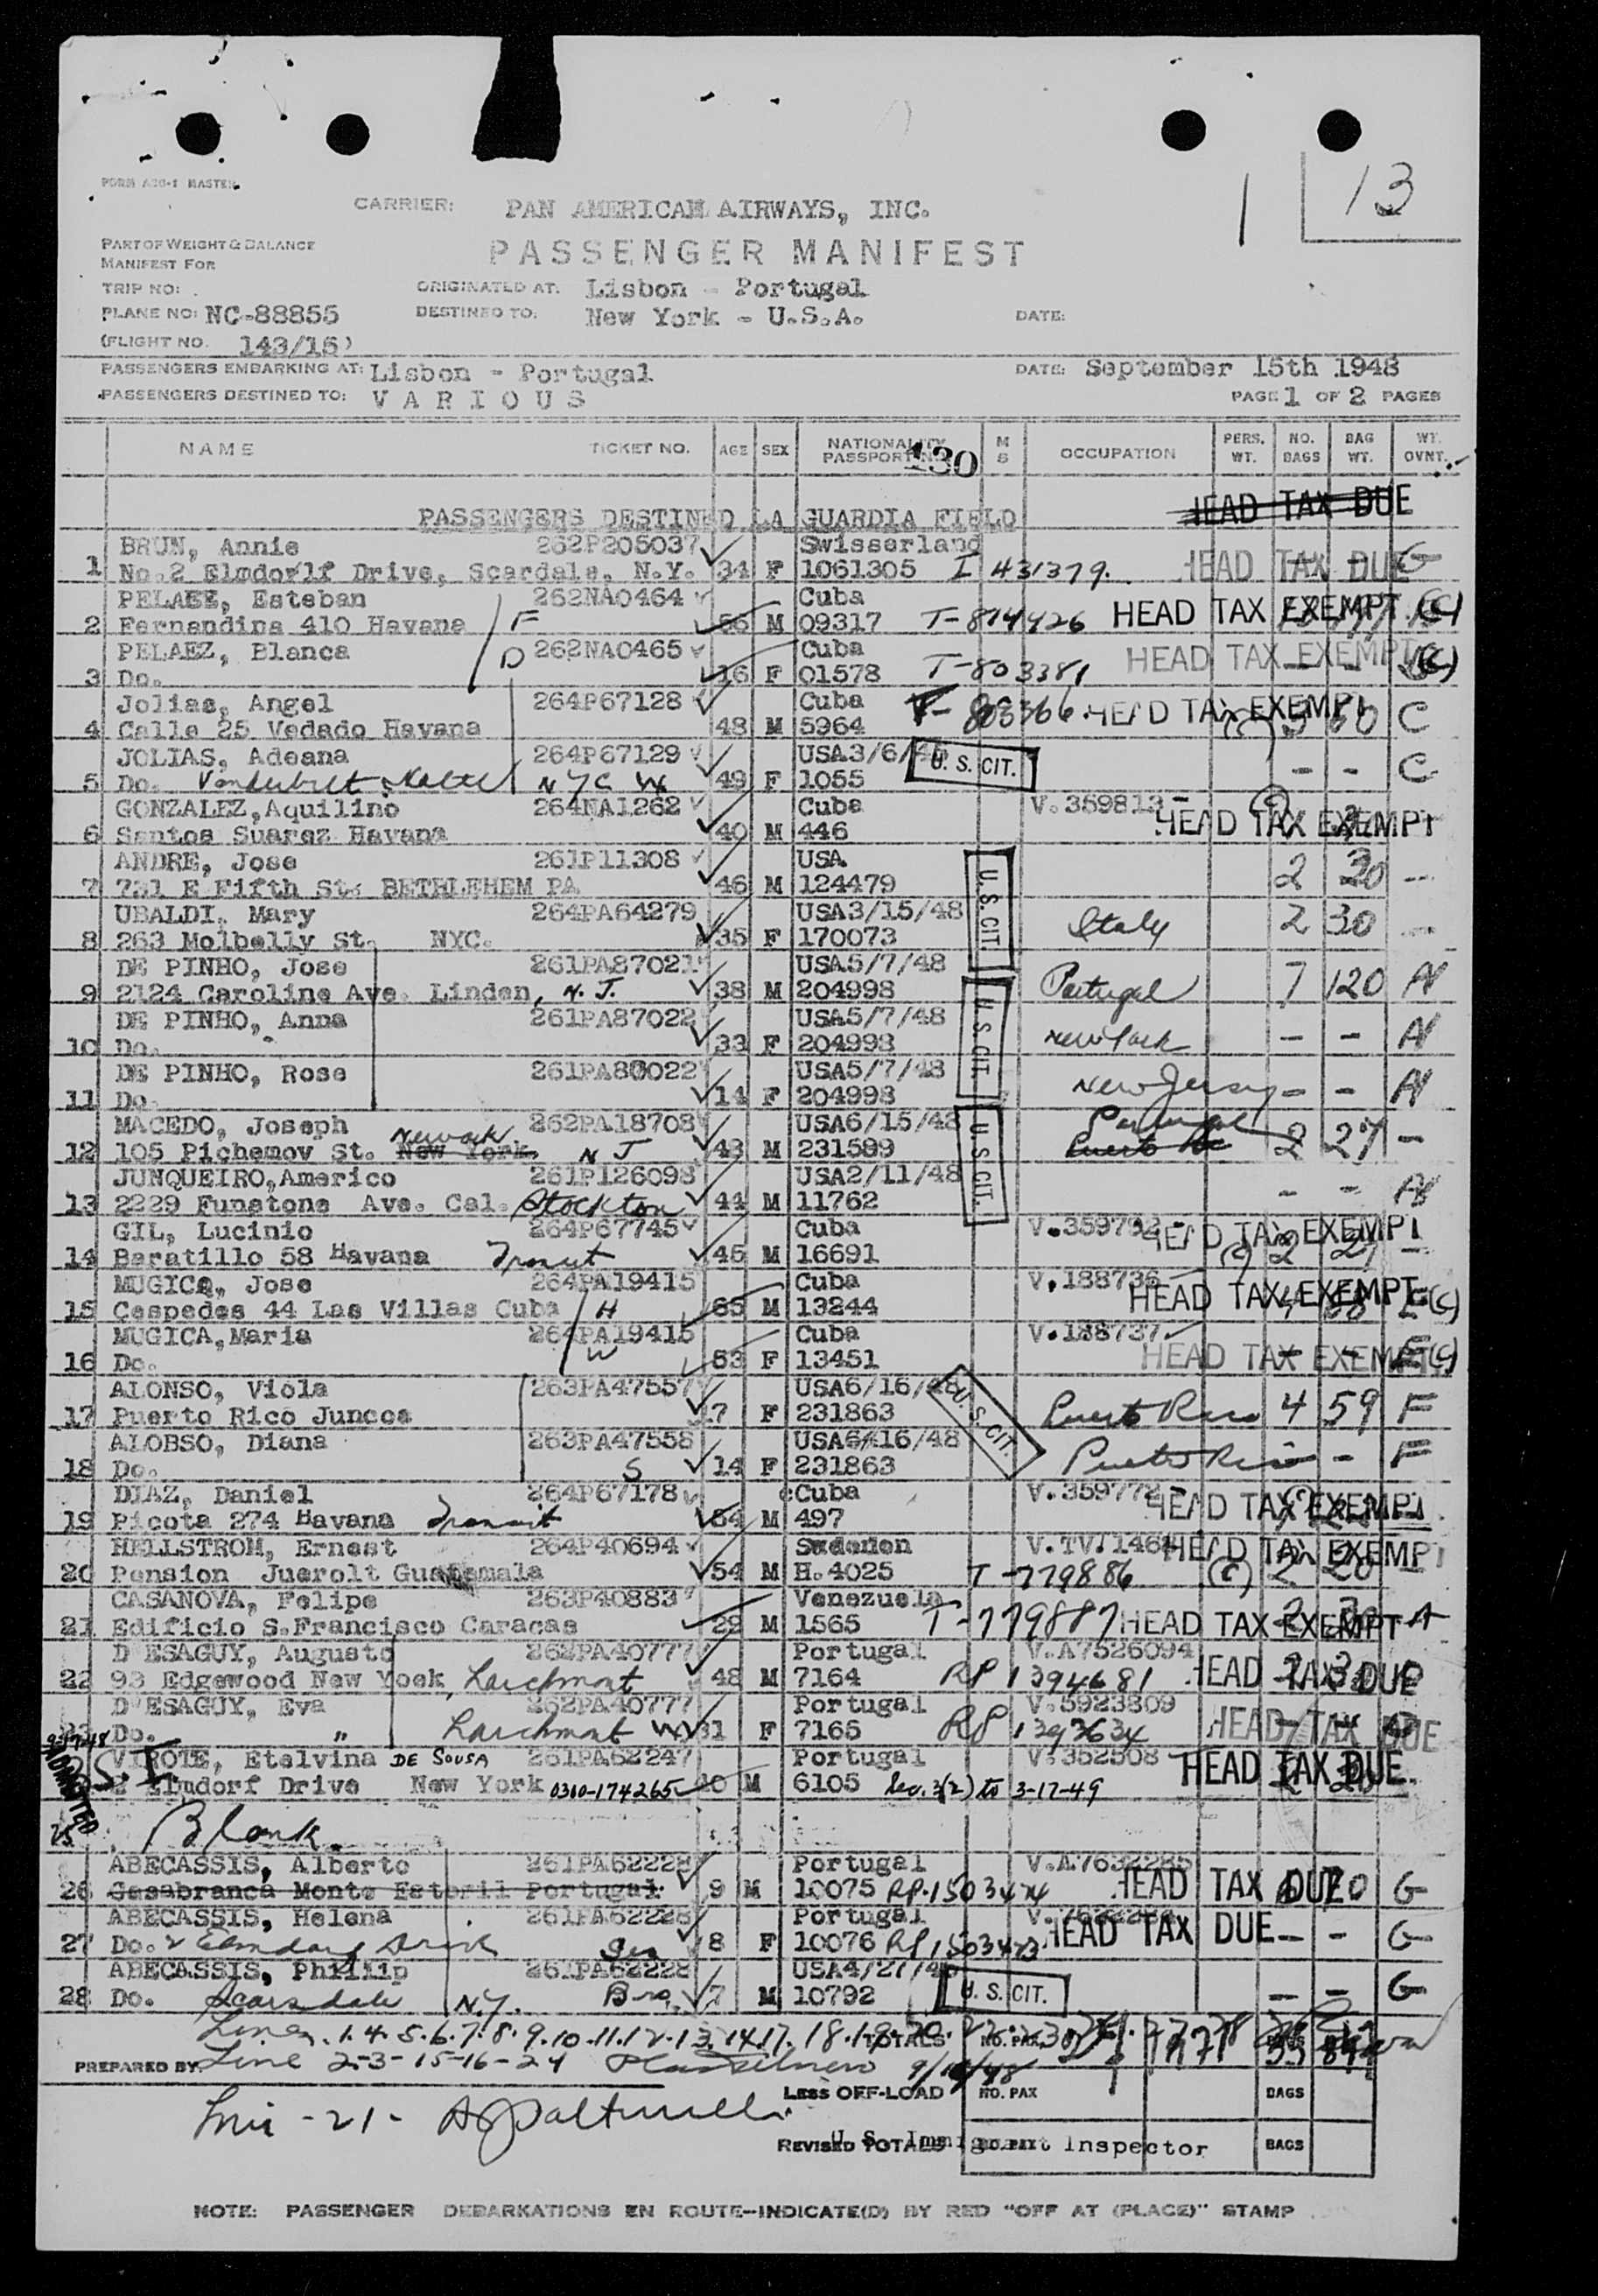 13
FORM A20-1 MASTER
CARRIER: PAN AMERICAN AIRWAYS, INC.
PART OF WEIGHT & BALANCE
MANIFEST FOR
PASSENGER MANIFEST
TRIP NO: ORIGINATED AT: Lisbon - Portugal
PLANE NO: NC-88855 DESTINED TO: New York - U.S.A. DATE:
(FLIGHT NO. 143/15)
PASSENGERS EMBARKING AT: Lisbon - Portugal DATE: September 15th 1948
PASSENGERS DESTINED TO: VARIOUS PAGE 1 OF 2 PAGES
NAME TICKET NO. AGE SEX NATIONALITY PASSPORT NO. M S OCCUPATION PERS. WT. NO. BAGS BAG WT. WT. OVNT.
130
PASSENGERS DESTINED LA GUARDIA FIELD HEAD TAX DUE
BRUN, Annie 262P205037 Swisserland
1 No.2 Elmdorlf Drive, Scardale, N.Y. 34 F 1061305 I 431379. HEAD TAX DUE G
PELAEZ, Esteban 262NA0464 Cuba
2 Fernandina 410 Havana F M 09317 T-814426 HEAD TAX EXEMPT (C)
PELAEZ, Blanca D 262NA0465 Cuba
3 Do. 16 F 01578 T-803381 HEAD TAX EXEMPT (C)
Jolias, Angel 264P67128 Cuba
4 Calle 25 Vedado Havana 48 M 5964 803366. HEAD TAX EXEMPT C
JOLIAS, Adeana 264P67129 USA3/6/48 U. S. CIT.
5 Do. Vanderbilt Hotel NYC W 49 F 1055 - - C
GONZALEZ, Aquilino 264NA1262 Cuba V.359813-
6 Santos Suarez Havana 40 M 446 HEAD TAX EXEMPT
ANDRE, Jose 261P11308 USA
7 731 E Fifth St. BETHLEHEM PA 46 M 124479 U. S. CIT. 2 30 -
UBALDI, Mary 264PA64279 USA3/15/48
8 263 Molbelly St. NYC. 35 F 170073 Italy 2 30
DE PINHO, Jose 261PA87021 USA5/7/48
9 2124 Caroline Ave. Linden, N. J. 38 M 204998 Portugal 7 120 A
DE PINHO, Anna 261PA87022 USA5/7/48 U. S. CIT.
10 Do. 33 F 204998 New York - - A
DE PINHO, Rose 261PA80022 USA5/7/48
11 Do. 14 F 204998 New Jersey - - A
MACEDO, Joseph 262PA18703 USA6/15/48 Portugal
12 105 Pichemov St. New York. Newark N J 43 M 231589 U. S. CIT. 2 27 -
JUNQUEIRO, Americo 261P126098 USA2/11/48
13 2229 Funstone Ave. Cal. Stockton 44 M 11762 - - A
GIL, Lucinio 264P67745 Cuba V.359792-
14 Baratillo 58 Havana Transit 45 M 16691 HEAD TAX EXEMPT
MUGICA, Jose 264PA19415 Cuba V.188736
15 Cespedes 44 Las Villas Cuba H 65 M 13244 HEAD TAX EXEMPT (C)
MUGICA, Maria 264PA19415 Cuba V.188737
16 Do. W 53 F 13451 HEAD TAX EXEMPT (C)
ALONSO, Viola 263PA47557 USA6/16/48
17 Puerto Rico Juncos 17 F 231863 U. S. CIT. Puerto Rico 4 59 F
ALOBSO, Diana 263PA47558 USA6/16/48
18 Do. S 14 F 231863 Puerto Rico - - F
DIAZ, Daniel 264P67178 Cuba V.359772-
19 Picota 274 Havana Transit M 497 HEAD TAX EXEMPT
HELLSTROM, Ernest 264P40694 Sweden
20 Pension Juerolt Guatemala 54 M H.4025 T-779886 (C) HEAD TAX EXEMPT
CASANOVA, Felipe 263P40883 Venezuela
21 Edificio S.Francisco Caracas 29 M 1565 T-779887 HEAD TAX EXEMPT A
D ESAGUY, Augusto 262PA40777 Portugal V.A7526094
22 93 Edgewood New York, Larchmont 48 M 7164 RP 1394681 HEAD TAX DUE
D'ESAGUY, Eva 262PA40777 Portugal V.5923809
23 Do. " Larchmont W 31 F 7165 RP 1393634 HEAD TAX DUE
9-17-48 ADMITTED S I
VIROTE, Etelvina DE SOUSA 261PA62247 Portugal V.352508
2 Elmdorf Drive New York 0300-174265 M 6105 Sec. 3(2) to 3-17-49 HEAD TAX DUE
25 Blank.
ABECASSIS, Alberto 261PA62228 Portugal V.A7632285
26 Casabranca Monte Estoril Portugal 9 M 10075 RP.1503474 HEAD TAX DUE G
ABECASSIS, Helena 261PA62228 Portugal
27 Do. 2 Elmdorf Drive Sis 8 F 10076 RP 1503473 HEAD TAX DUE - - G
ABECASSIS, Phillip 261PA62228 USA4/27/48
28 Do. Scarsdale N.Y. Bro. 7 M 10792 U. S. CIT. - - G
Lines. 1.4.5.6.7.8.9.10.11.12.13.14.17.18.19.20. TOTALS NO. PAX BAGS
PREPARED BY Line 2-3-15-16-24
LESS OFF-LOAD NO. PAX BAGS
Line -21-
REVISED TOTALS NO. PAX BAGS
U. S. Immigrant Inspector
NOTE: PASSENGER DEBARKATIONS EN ROUTE—INDICATE(D) BY RED "OFF AT (PLACE)" STAMP